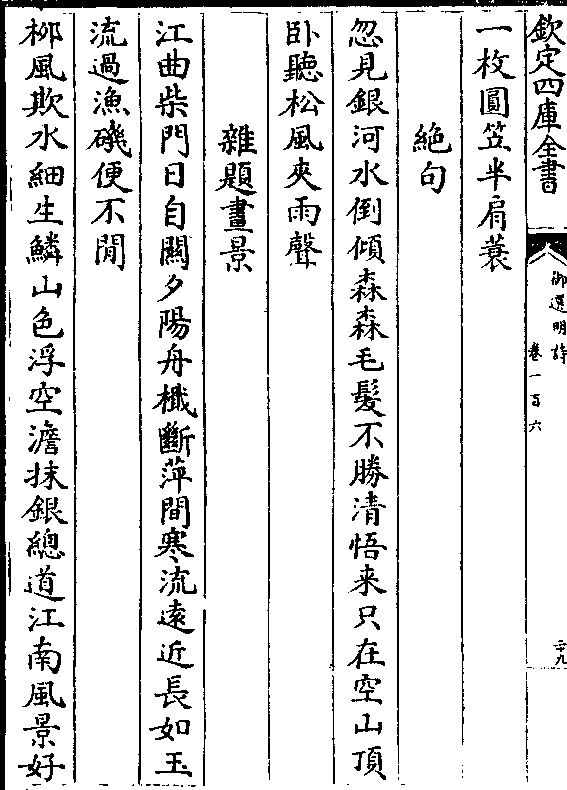 欽定四庫全書
御選明詩
卷一百六
二十九
一枚圓笠半肩蓑
絶句
忽見銀河水倒傾森森毛髮不勝清悟来只在空山頂
卧聽松風夾雨聲
雜題畫景
江曲柴門日自關夕陽舟檥斷萍間寒流逺近長如玉
流過漁磯便不閒
桞風欺水細生鱗山色浮空澹抹銀總道江南風景好